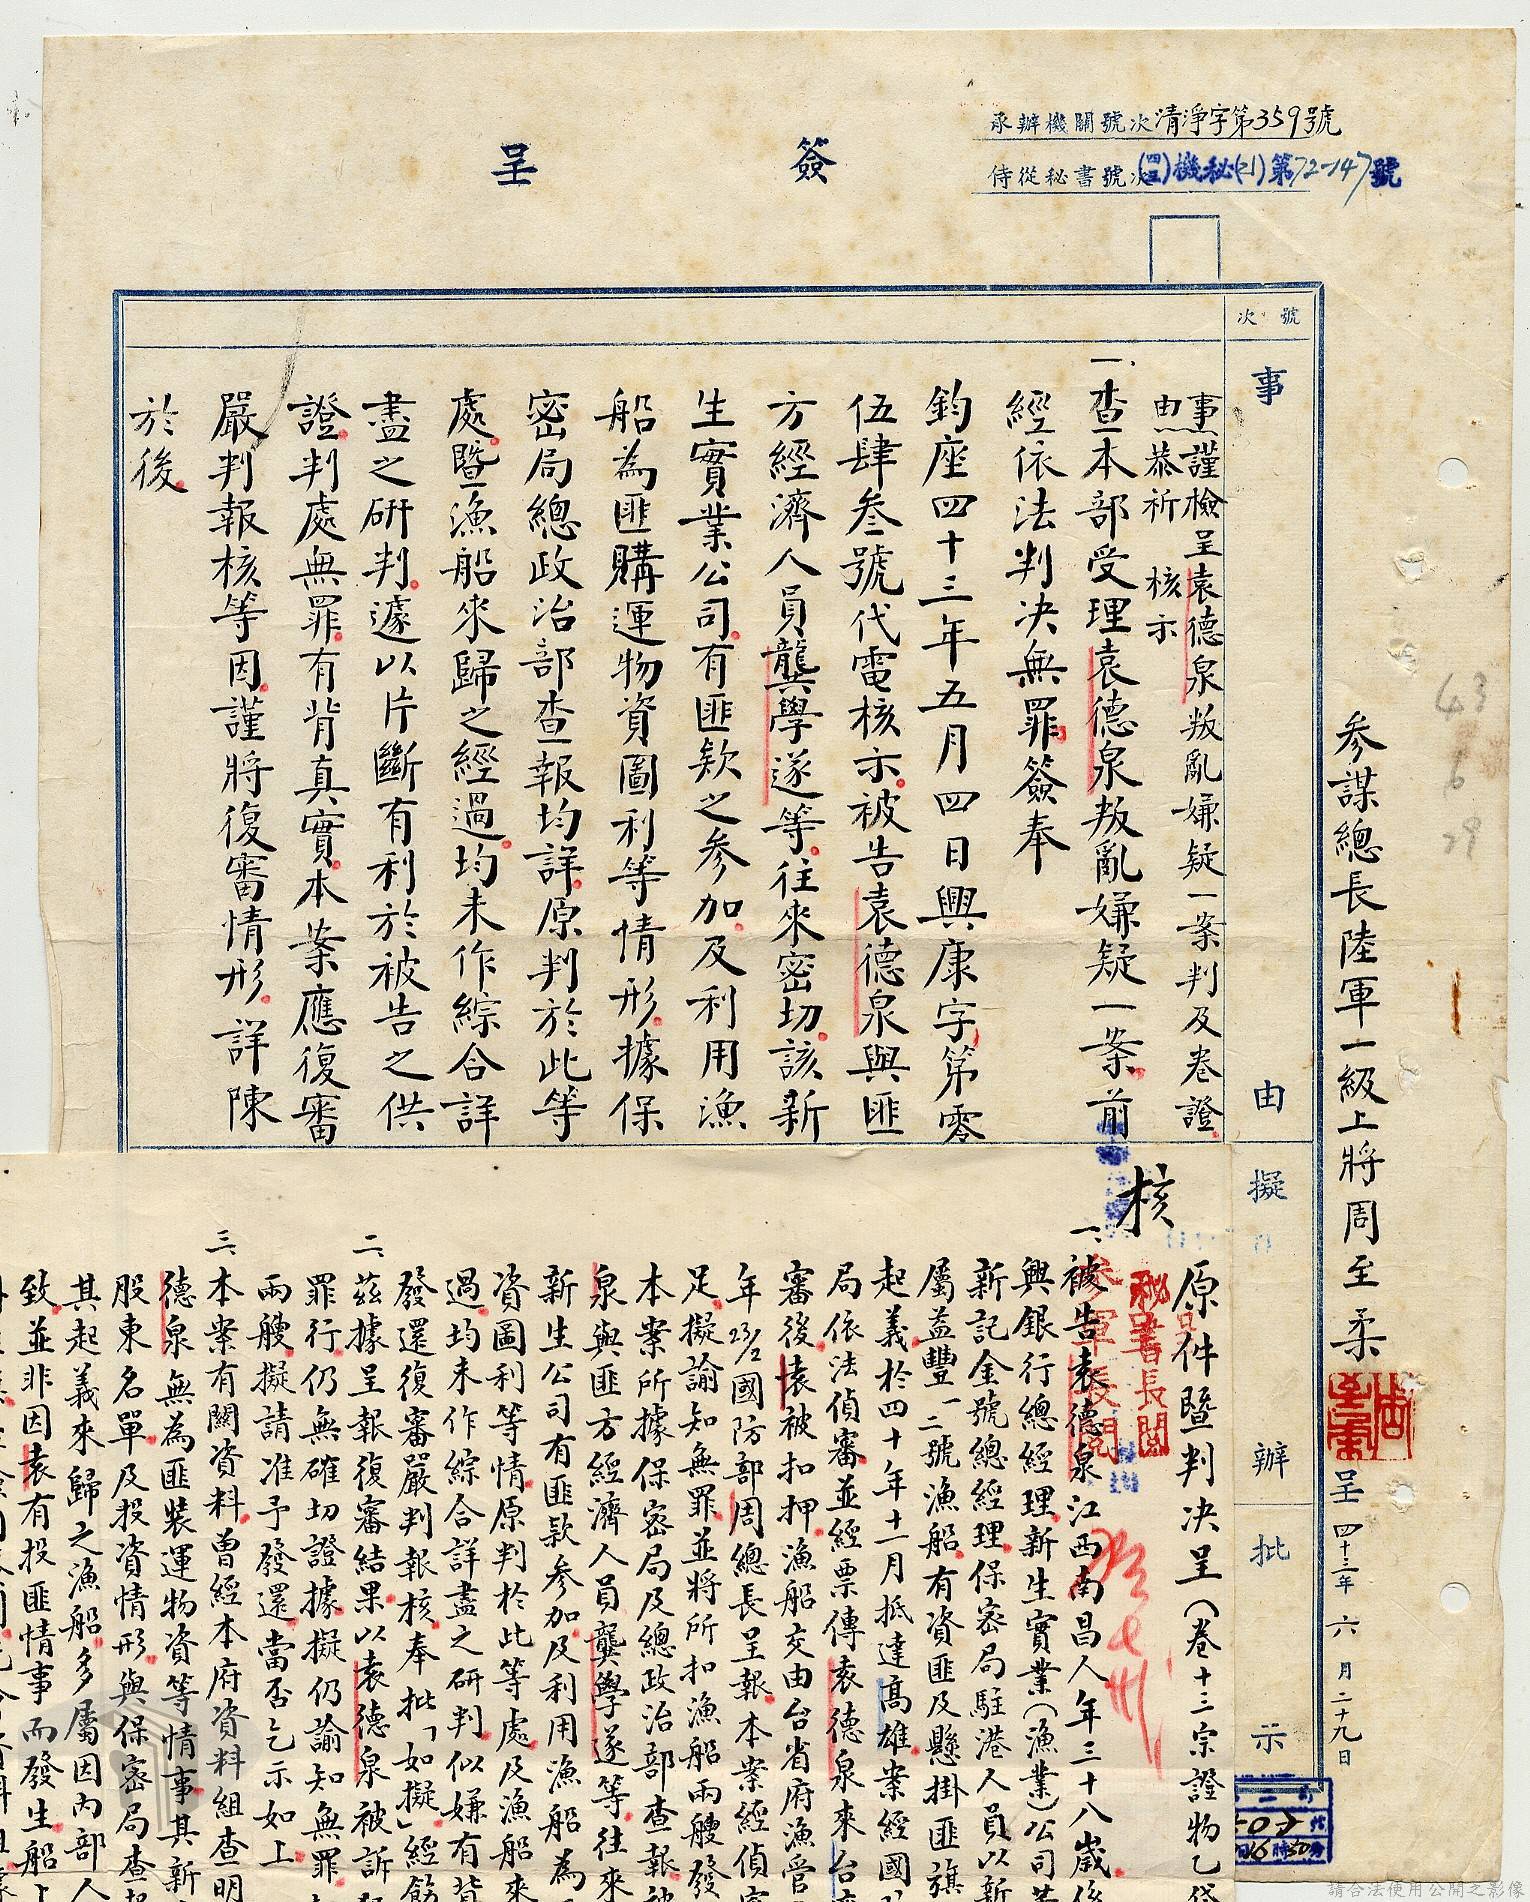 承辦機關號次清淨字第359號
侍從秘書號次(四三)機秘(21)第72-147號
簽呈
號次
事由
擬辦
批示
事由：謹檢呈袁德泉叛亂嫌疑一案判及卷證
恭祈 核示
一、查本部受理袁德泉叛亂嫌疑一案前
經依法判決無罪簽奉
鈞座四十三年五月四日興康字第零
伍肆叁號代電核示被告袁德泉與匪
方經濟人員龔學遂等往來密切該新
生實業公司有匪款之參加及利用漁
船為匪購運物資圖利等情形據保
密局總政治部查報均詳原判於此等
處暨漁船來歸之經過均未作綜合詳
盡之研判遽以片斷有利於被告之供
證判處無罪有背真實本案應復審
嚴判報核等因謹將復審情形詳陳
於後
參謀總長陸軍一級上將周至柔
呈 四十三年 六月二十九日
43
6
29
核
秘書長閱
參軍長閱
原件暨判決呈(卷十三宗證物乙袋
一、被告袁德泉江西南昌人年三十八歲係
興銀行總經理新生實業(漁業)公司董
新記金號總經理保密局駐港人員以新
屬益豐一二號漁船有資匪及懸掛匪旗
起義於四十年十一月抵達高雄案經國
局依法偵審並經票傳袁德泉來台
審後袁被扣押漁船交由台省府漁管
年23/2國防部周總長呈報本案經偵
足擬諭知無罪並將所扣漁船兩艘發
本案所據保密局及總政治部查報
泉與匪方經濟人員龔學遂等往來
新生公司有匪款參加及利用漁船為
資圖利等情原判於此等處及漁船來
過均未作綜合詳盡之研判似嫌有背
發還復審嚴判報核奉批「如擬」經飭
二、茲據呈報復審結果以袁德泉被訴
罪行仍無確切證據擬仍諭知無罪
兩艘擬請准予發還當否乞示如上
三、本案有關資料曾經本府資料組查明
德泉無為匪裝運物資等情事其新
股東名單及投資情形與保密局查
其起義來歸之漁船多屬因內部人
致並非因袁有投匪情事而發生船上
請合法使用公開之影像